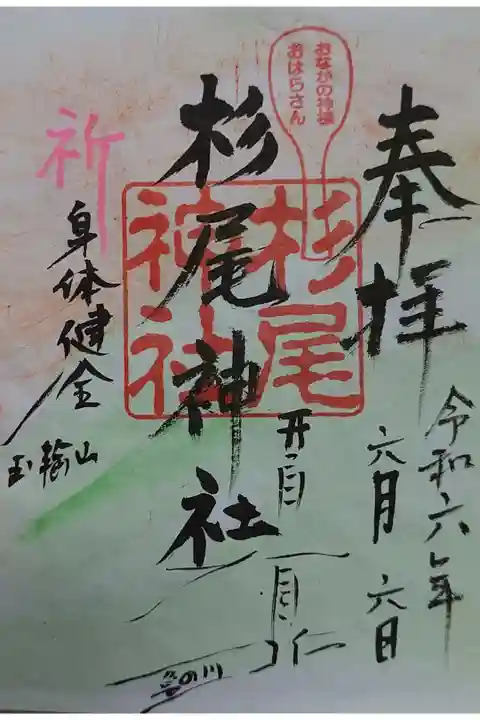 奉拝
令和六年
六月六日
おなかの神様
おはらさん
杉尾神社
杉尾
神社
祈
身体健全
玉輪山